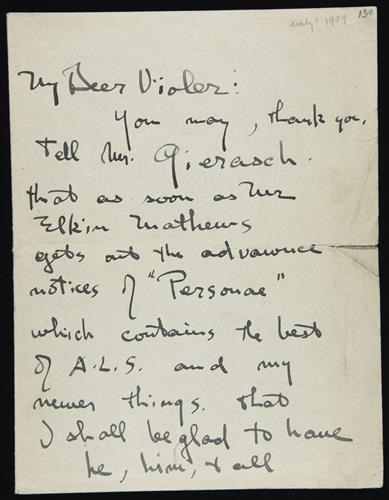 early 1909 130
My Deer Violer:
You may, thank you,
tell Mr. Gierasch.
that as soon as Mr
Elkin Mathews
gets out the advawnce
notices of "Personae"
which contains the best
of A.L.S. and my
newer things. that
I shall be glad to have
he, him, & all